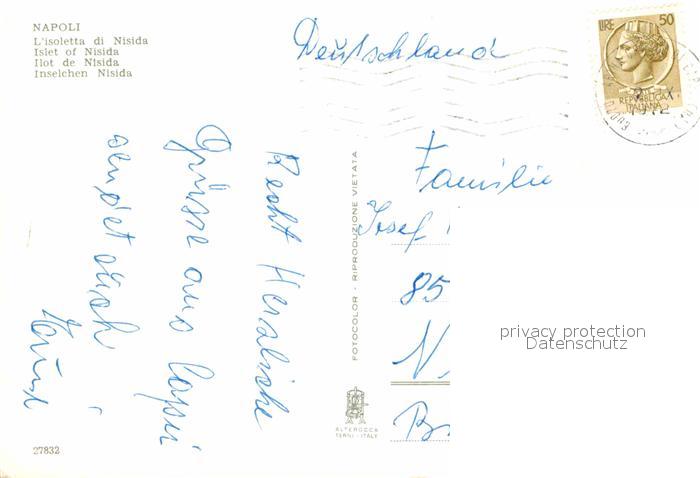 NAPOLI
L'isoletta di Nisida
Islet of Nisida
Ilot de Nisida
Inselchen Nisida
Deutschland
LIRE 50
REPUBBLICA
ITALIANA
1972
Recht Herzliche
Grüsse aus Capri
sendet euch
FOTOCOLOR - RIPRODUZIONE VIETATA
Familie
Josef
85
N
B
privacy protection
Datenschutz
ALTEROCCA
TERNI - ITALY
27832